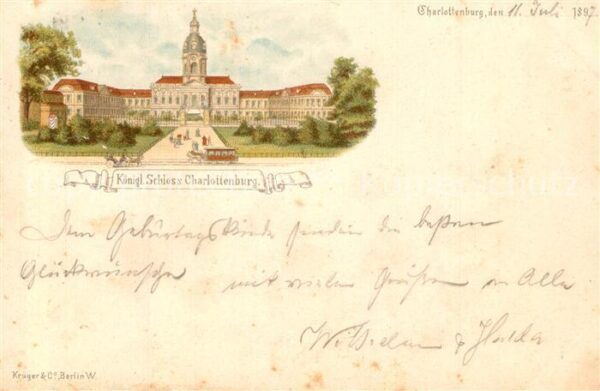 Charlottenburg, den 11. Juli 1897
Königl. Schloss Charlottenburg.
Dem Geburtagskinde senden die besten
Glückwünsche mit vielen Grüßen an Alle
Wilhelm &
Krüger & Co., Berlin W.